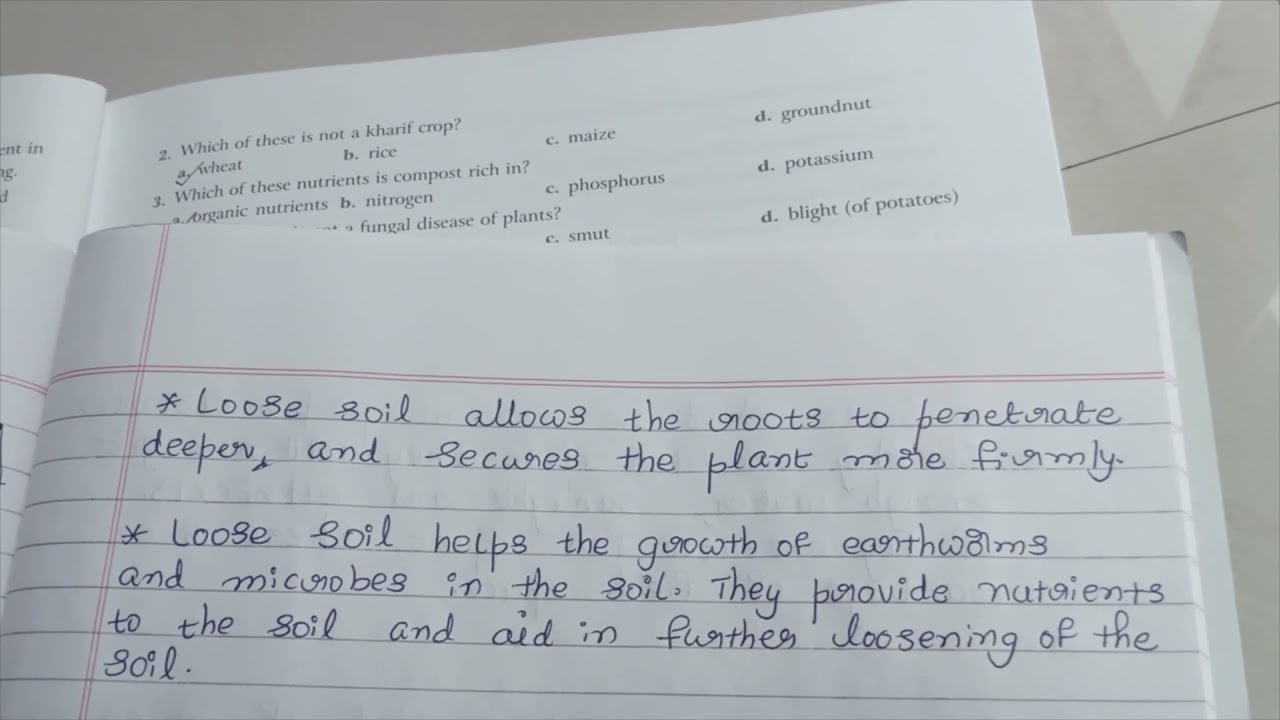 ent in
ng.
d
2. Which of these is not a kharif crop?
a. wheat b. rice c. maize d. groundnut
3. Which of these nutrients is compost rich in?
a. organic nutrients b. nitrogen c. phosphorus d. potassium
a fungal disease of plants?
c. smut d. blight (of potatoes)
* Loose soil allows the roots to penetrate
deeper, and secures the plant more firmly.
* Loose soil helps the growth of earthworms
and microbes in the soil. They provide nutrients
to the soil and aid in further loosening of the
soil.